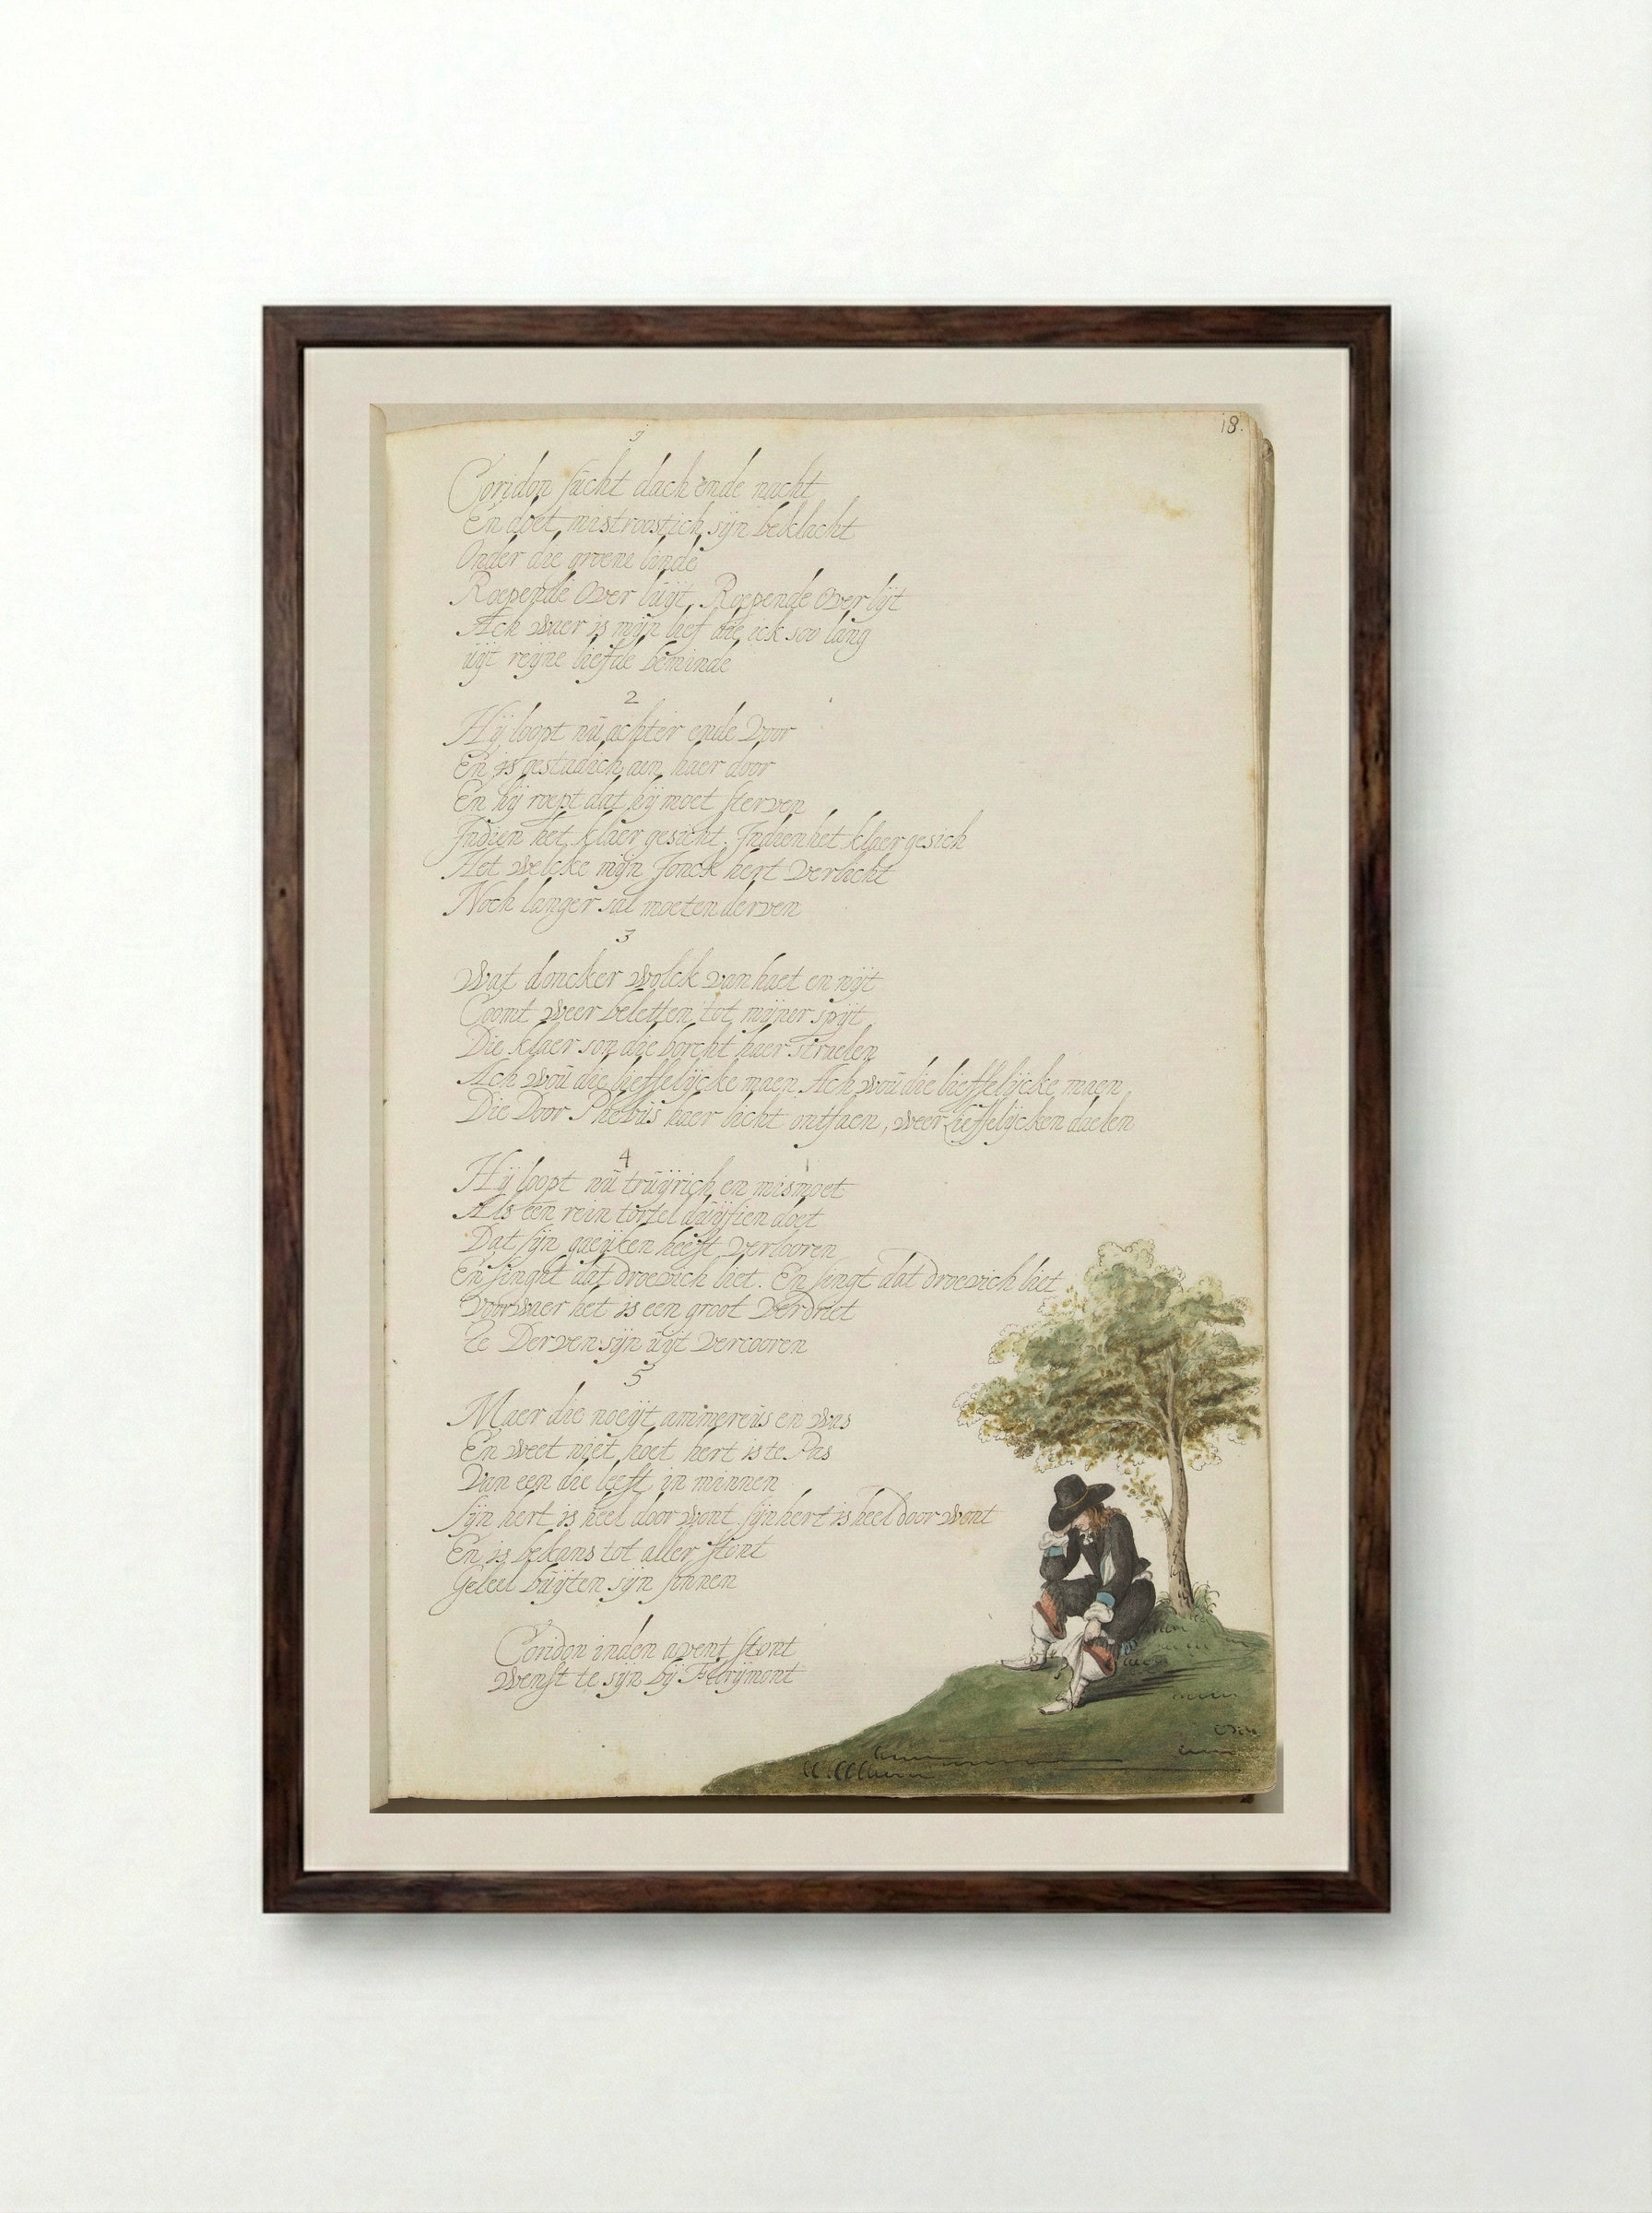 18.
1
Coridon sücht dach ende nacht
En doet mistroostich sijn beklacht
Onder die groene linde
Roepende Over lüijt, Roepende Over lijt
Ach waer is mijn lief die ick soo lang
üijt reijne liefde beminde
2
Hij loopt nü achter ende Voor
En is gestadich aen haer door
En hij roept dat hij moet sterven
Indien het klaer gesicht. Indien het klaer gesich
Het welcke mijn Jonck hert verlicht
Noch langer sal moeten derven
3
Wat doncker wolck van haet en nijt
Coomt weer beletten tot mijner spijt
Die klaer son die borcht haer straelen
Ach woü die lieffelijcke maen Ach woü die lieffelijcke maen
Die Door Phebüs haer licht ontfaen, weer Lieffelijcken daelen
4
Hij loopt nü trüijrich en mismoet
Als een rein tortel düijfien doet
Dat sijn gaeijken heeft verlooren
En singht dat droevich liet. En singt dat droevich liet
Voorwaer het is een groot Verdriet
te Derven sijn üijt vercooren
5
Maer die noeijt ammereüs en was
En weet niet hoet hert is te Pas
Van een die leeft in minnen
sijn hert is heel door wont sijn hert is heel door wont
En is bekans tot aller stont
Geleel büijten sijn sinnen
Coridon inden avent stont
Wenst te sijn bij Florijmont